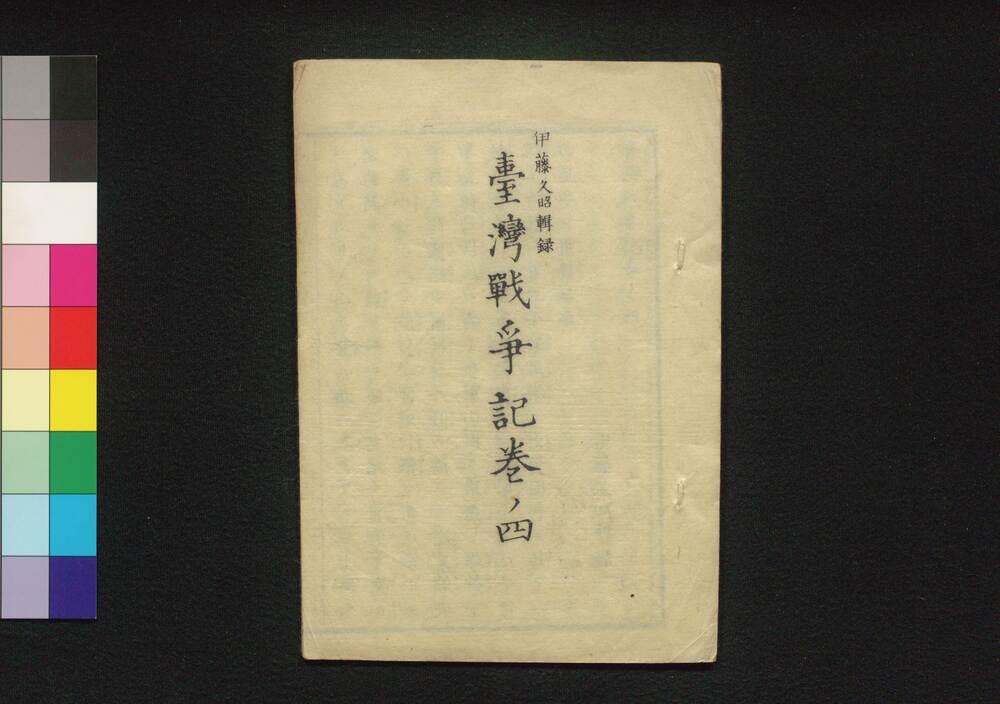 伊藤久昭輯録
臺灣戰爭記巻ノ四